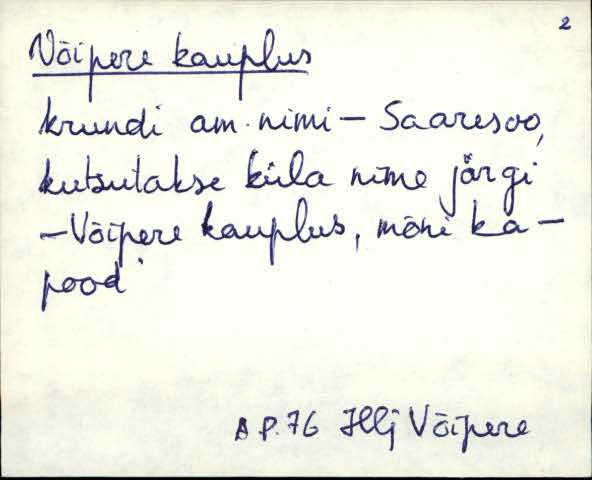 2
Võipere kauplus
krundi am. nimi – Saaresoo,
kutsutakse küla nime järgi
– Võipere kauplus, mõni ka –
pood
A P. 76 Hlj Võipere